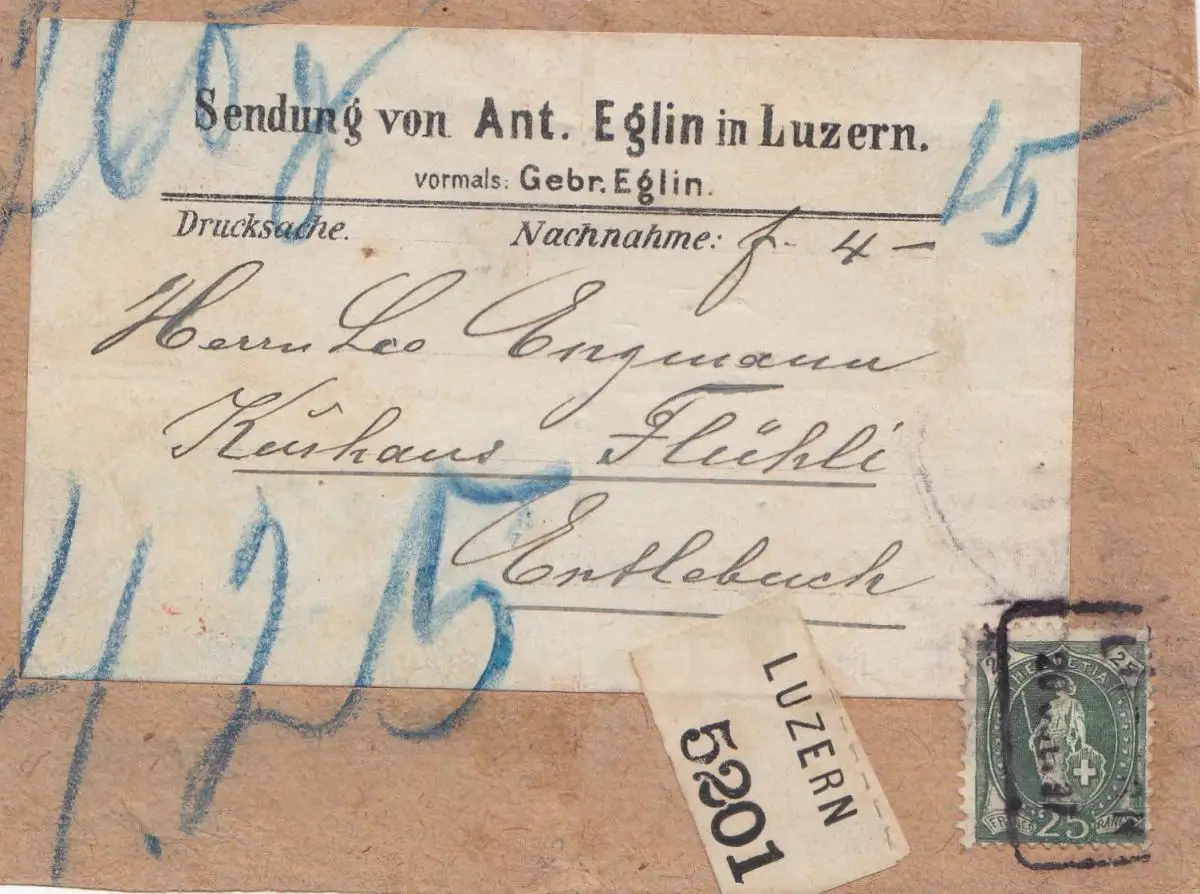 Sendung von Ant. Eglin in Luzern.
vormals: Gebr. Eglin.
15
Drucksache. Nachnahme: f. 4 —
Herrn Leo Engmann
Kurhaus Flühli
Entlebuch
425
LUZERN
5201
HELVETIA
25
FRANCO 25 FRANCO